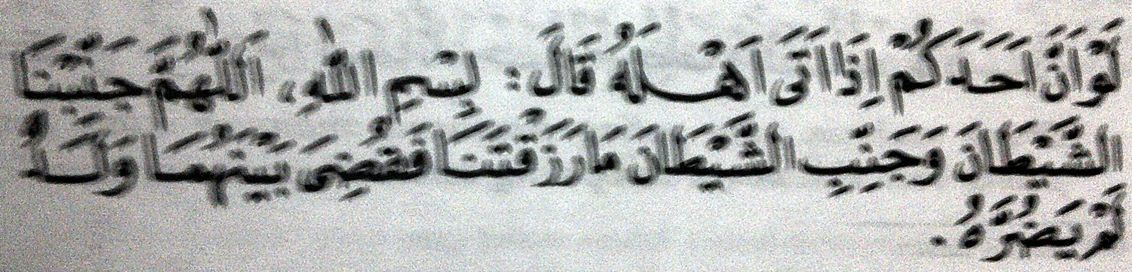 لَوْ اَنَّ اَحَدَكُمْ اِذَا اَتَى اَهْلَهُ قَالَ: بِسْمِ اللهِ، اَللّٰهُمَّ جَنِّبْنَا
الشَّيْطَانَ وَجَنِّبِ الشَّيْطَانَ مَا رَزَقْتَنَا فَقُضِيَ بَيْنَهُمَا وَلَدٌ
لَمْ يَضُرَّهُ.